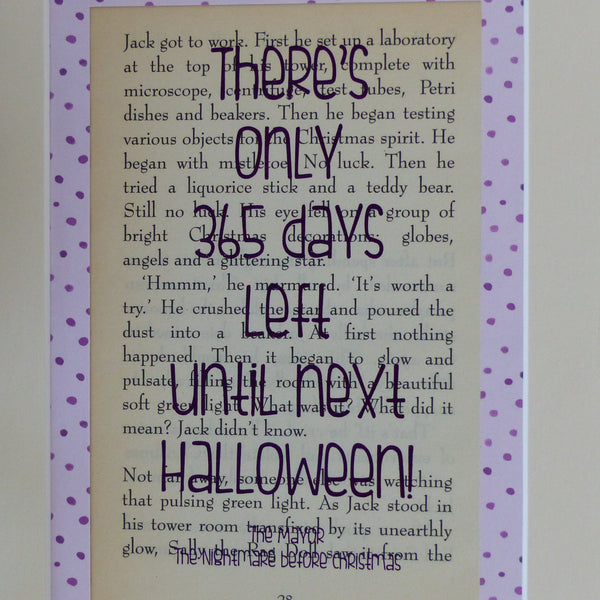 There's
only
365 days
left
until next
Halloween!
The Mayor
The Nightmare Before Christmas
Jack got to work. First he set up a laboratory
at the top of his tower, complete with
microscope, centrifuge, test tubes, Petri
dishes and beakers. Then he began testing
various objects for the Christmas spirit. He
began with mistletoe. No luck. Then he
tried a liquorice stick and a teddy bear.
Still no luck. His eye fell on a group of
bright Christmas decorations: globes,
angels and a glittering star.
‘Hmmm,’ he murmured. ‘It's worth a
try.’ He crushed the star and poured the
dust into a beaker. At first nothing
happened. Then it began to glow and
pulsate, filling the room with a beautiful
soft green light. What was it? What did it
mean? Jack didn't know.
Not far away, someone else was watching
that pulsing green light. As Jack stood in
his tower room transfixed by its unearthly
glow, Sally the Rag Doll saw it from the
28